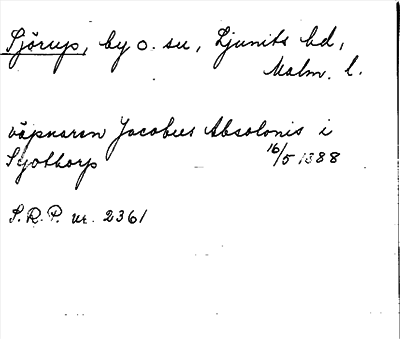 Sjörup, by o. su, Ljunits hd,
Malm. l.
väpnaren Jacobus Absolonis i
Syottorp 16/5 1388
S.R.P. nr. 2361